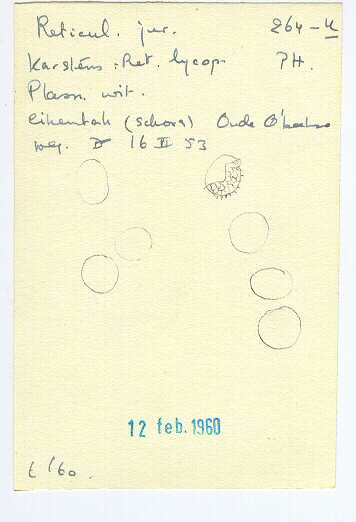 Reticul. jur. 264-4
Karstens: Ret. lycop. PH.
Plasm. wit.
Eikentak (schors) Oude
weg. 16 II 53
12 feb. 1960
t '60.